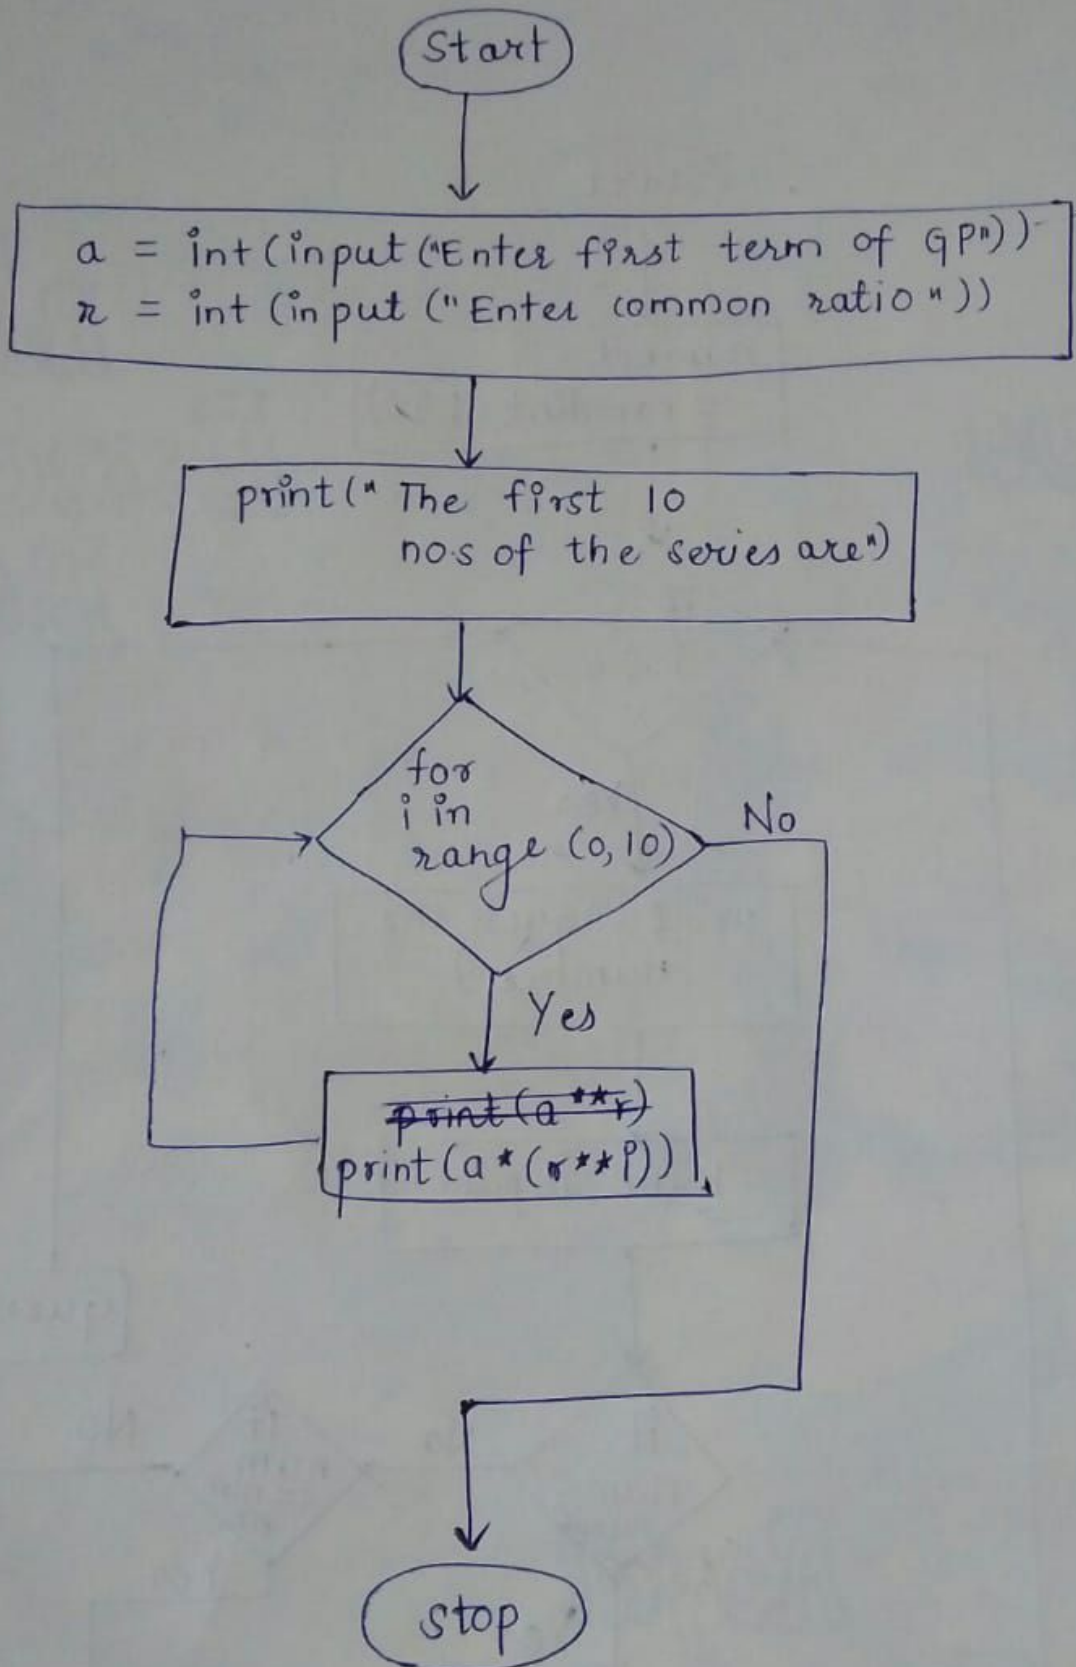 Start
a = int(input("Enter first term of GP"))
r = int(input("Enter common ratio"))
print("The first 10
nos of the series are")
for
i in
range (0,10)
No
Yes
print(a**r)
print(a*(r**i))
stop